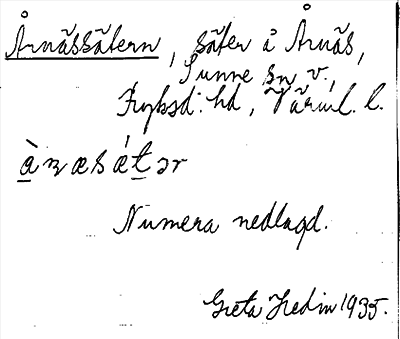 Årnässätern, säter å Årnäs,
Sunne sn v.,
Fryksd. hd, Värml. l.
Numera nedlagd.
Greta Hedin 1935.